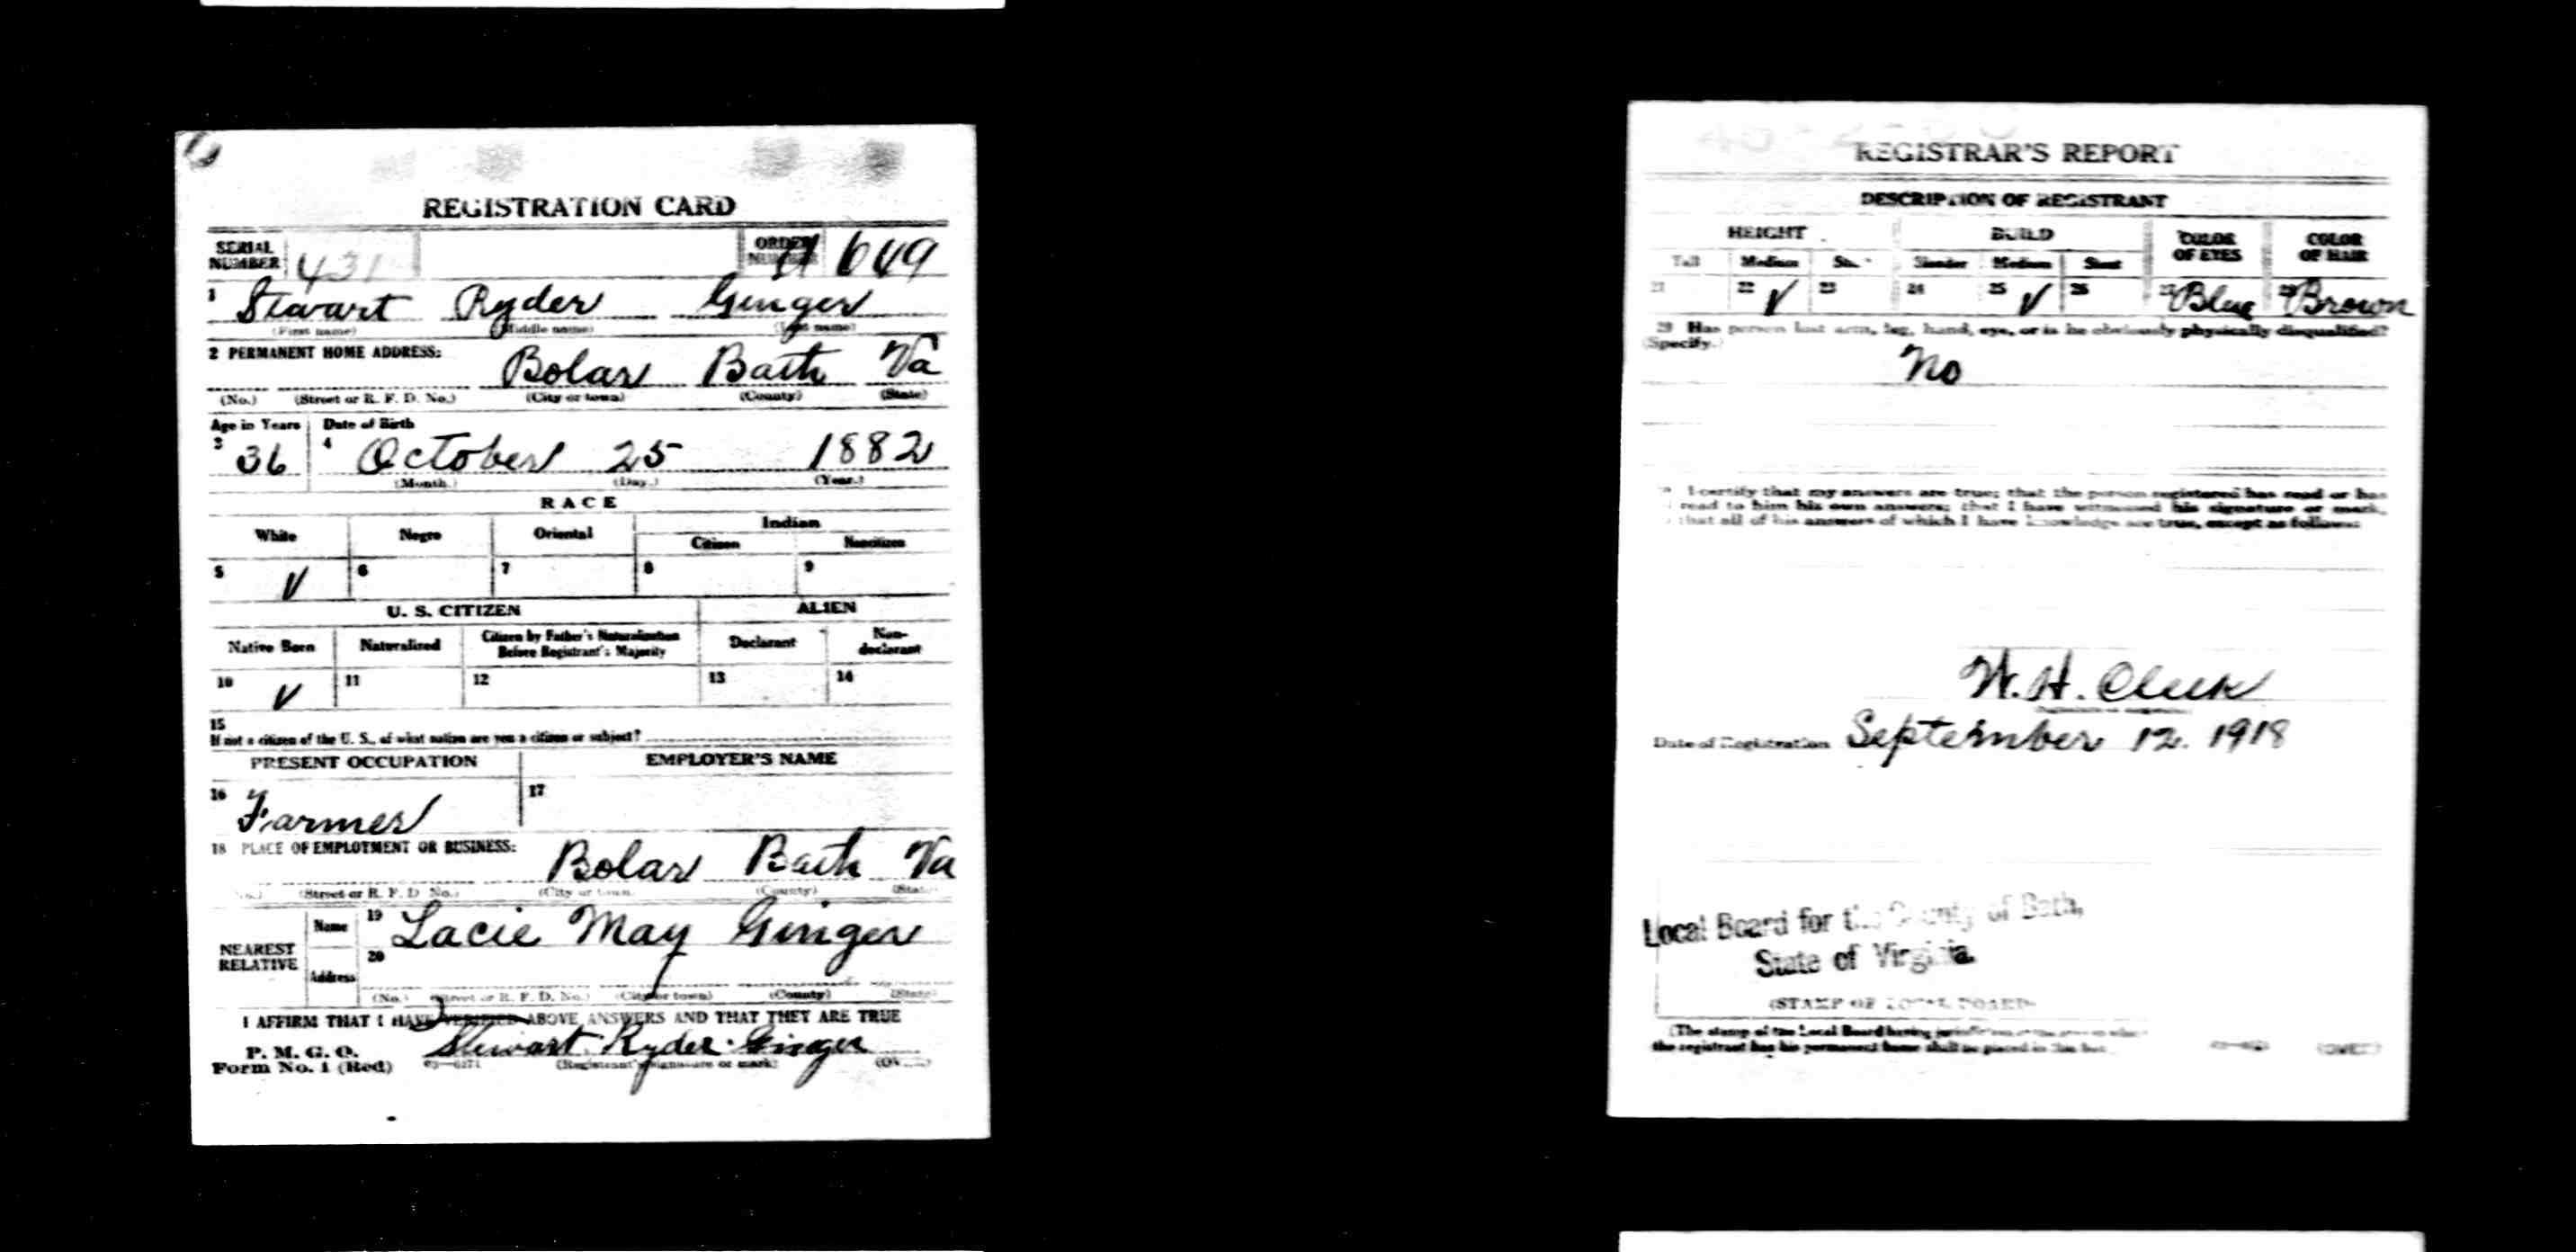 REGISTRATION CARD
SERIAL NUMBER 431 ORDER NUMBER A 649
1 Stewart Ryder Ginger
(First name) (Middle name) (Last name)
2 PERMANENT HOME ADDRESS:
Bolar Bath Va
(No.) (Street or R. F. D. No.) (City or town) (County) (State)
Age in Years Date of Birth
3 36 4 October 25 1882
(Month.) (Day.) (Year.)
RACE
White Negro Oriental Indian
Citizen Noncitizen
5 V 6 7 8 9
U. S. CITIZEN ALIEN
Native Born Naturalized Citizen by Father's Naturalization Before Registrant's Majority Declarant Non-declarant
10 V 11 12 13 14
15
If not a citizen of the U. S., of what nation are you a citizen or subject?
PRESENT OCCUPATION EMPLOYER'S NAME
16 Farmer 17
18 PLACE OF EMPLOYMENT OR BUSINESS:
Bolar Bath Va
(No.) (Street or R. F. D. No.) (City or town) (County) (State)
NEAREST RELATIVE Name 19 Lacie May Ginger
Address 20
(No.) (Street or R. F. D. No.) (City or town) (County) (State)
I AFFIRM THAT I HAVE VERIFIED ABOVE ANSWERS AND THAT THEY ARE TRUE
P. M. G. O.
Form No. 1 (Red) Stewart Ryder Ginger
(Registrant's signature or mark)
REGISTRAR'S REPORT
DESCRIPTION OF REGISTRANT
HEIGHT BUILD COLOR OF EYES COLOR OF HAIR
Tall Medium Slender Medium Stout
21 22 V 23 24 25 V 26 27 Blue 28 Brown
29 Has person lost arm, leg, hand, eye, or is he obviously physically disqualified?
(Specify.)
No
I certify that my answers are true; that the person registered has read or has
read to him his own answers; that I have witnessed his signature or mark,
that all of his answers of which I have knowledge are true, except as follows:
W. H. Cleek
Date of Registration September 12. 1918
Local Board for the County of Bath,
State of Virginia.
(STAMP OF LOCAL BOARD)
(The stamp of the Local Board having jurisdiction of the area in which
the registrant has his permanent home shall be placed in this box.
(OVER)